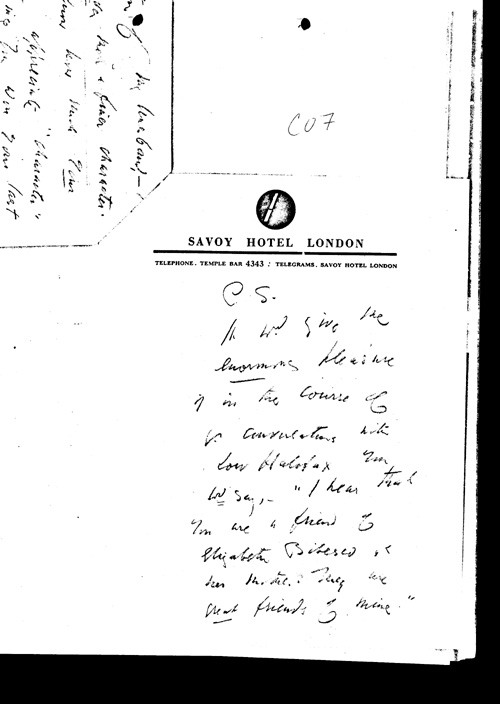 of my husband, —
a finer character.
have such
appreciate "character"
you won your last
C07
SAVOY HOTEL LONDON
TELEPHONE. TEMPLE BAR 4343 : TELEGRAMS. SAVOY HOTEL LONDON
P S.
It wd give me
enormous pleasure
if in the course of
yr conversations with
Lord Halifax you
wd say, — "I hear that
you are a friend of
Elizabeth Bibesco &
her mother. They are
great friends of mine."